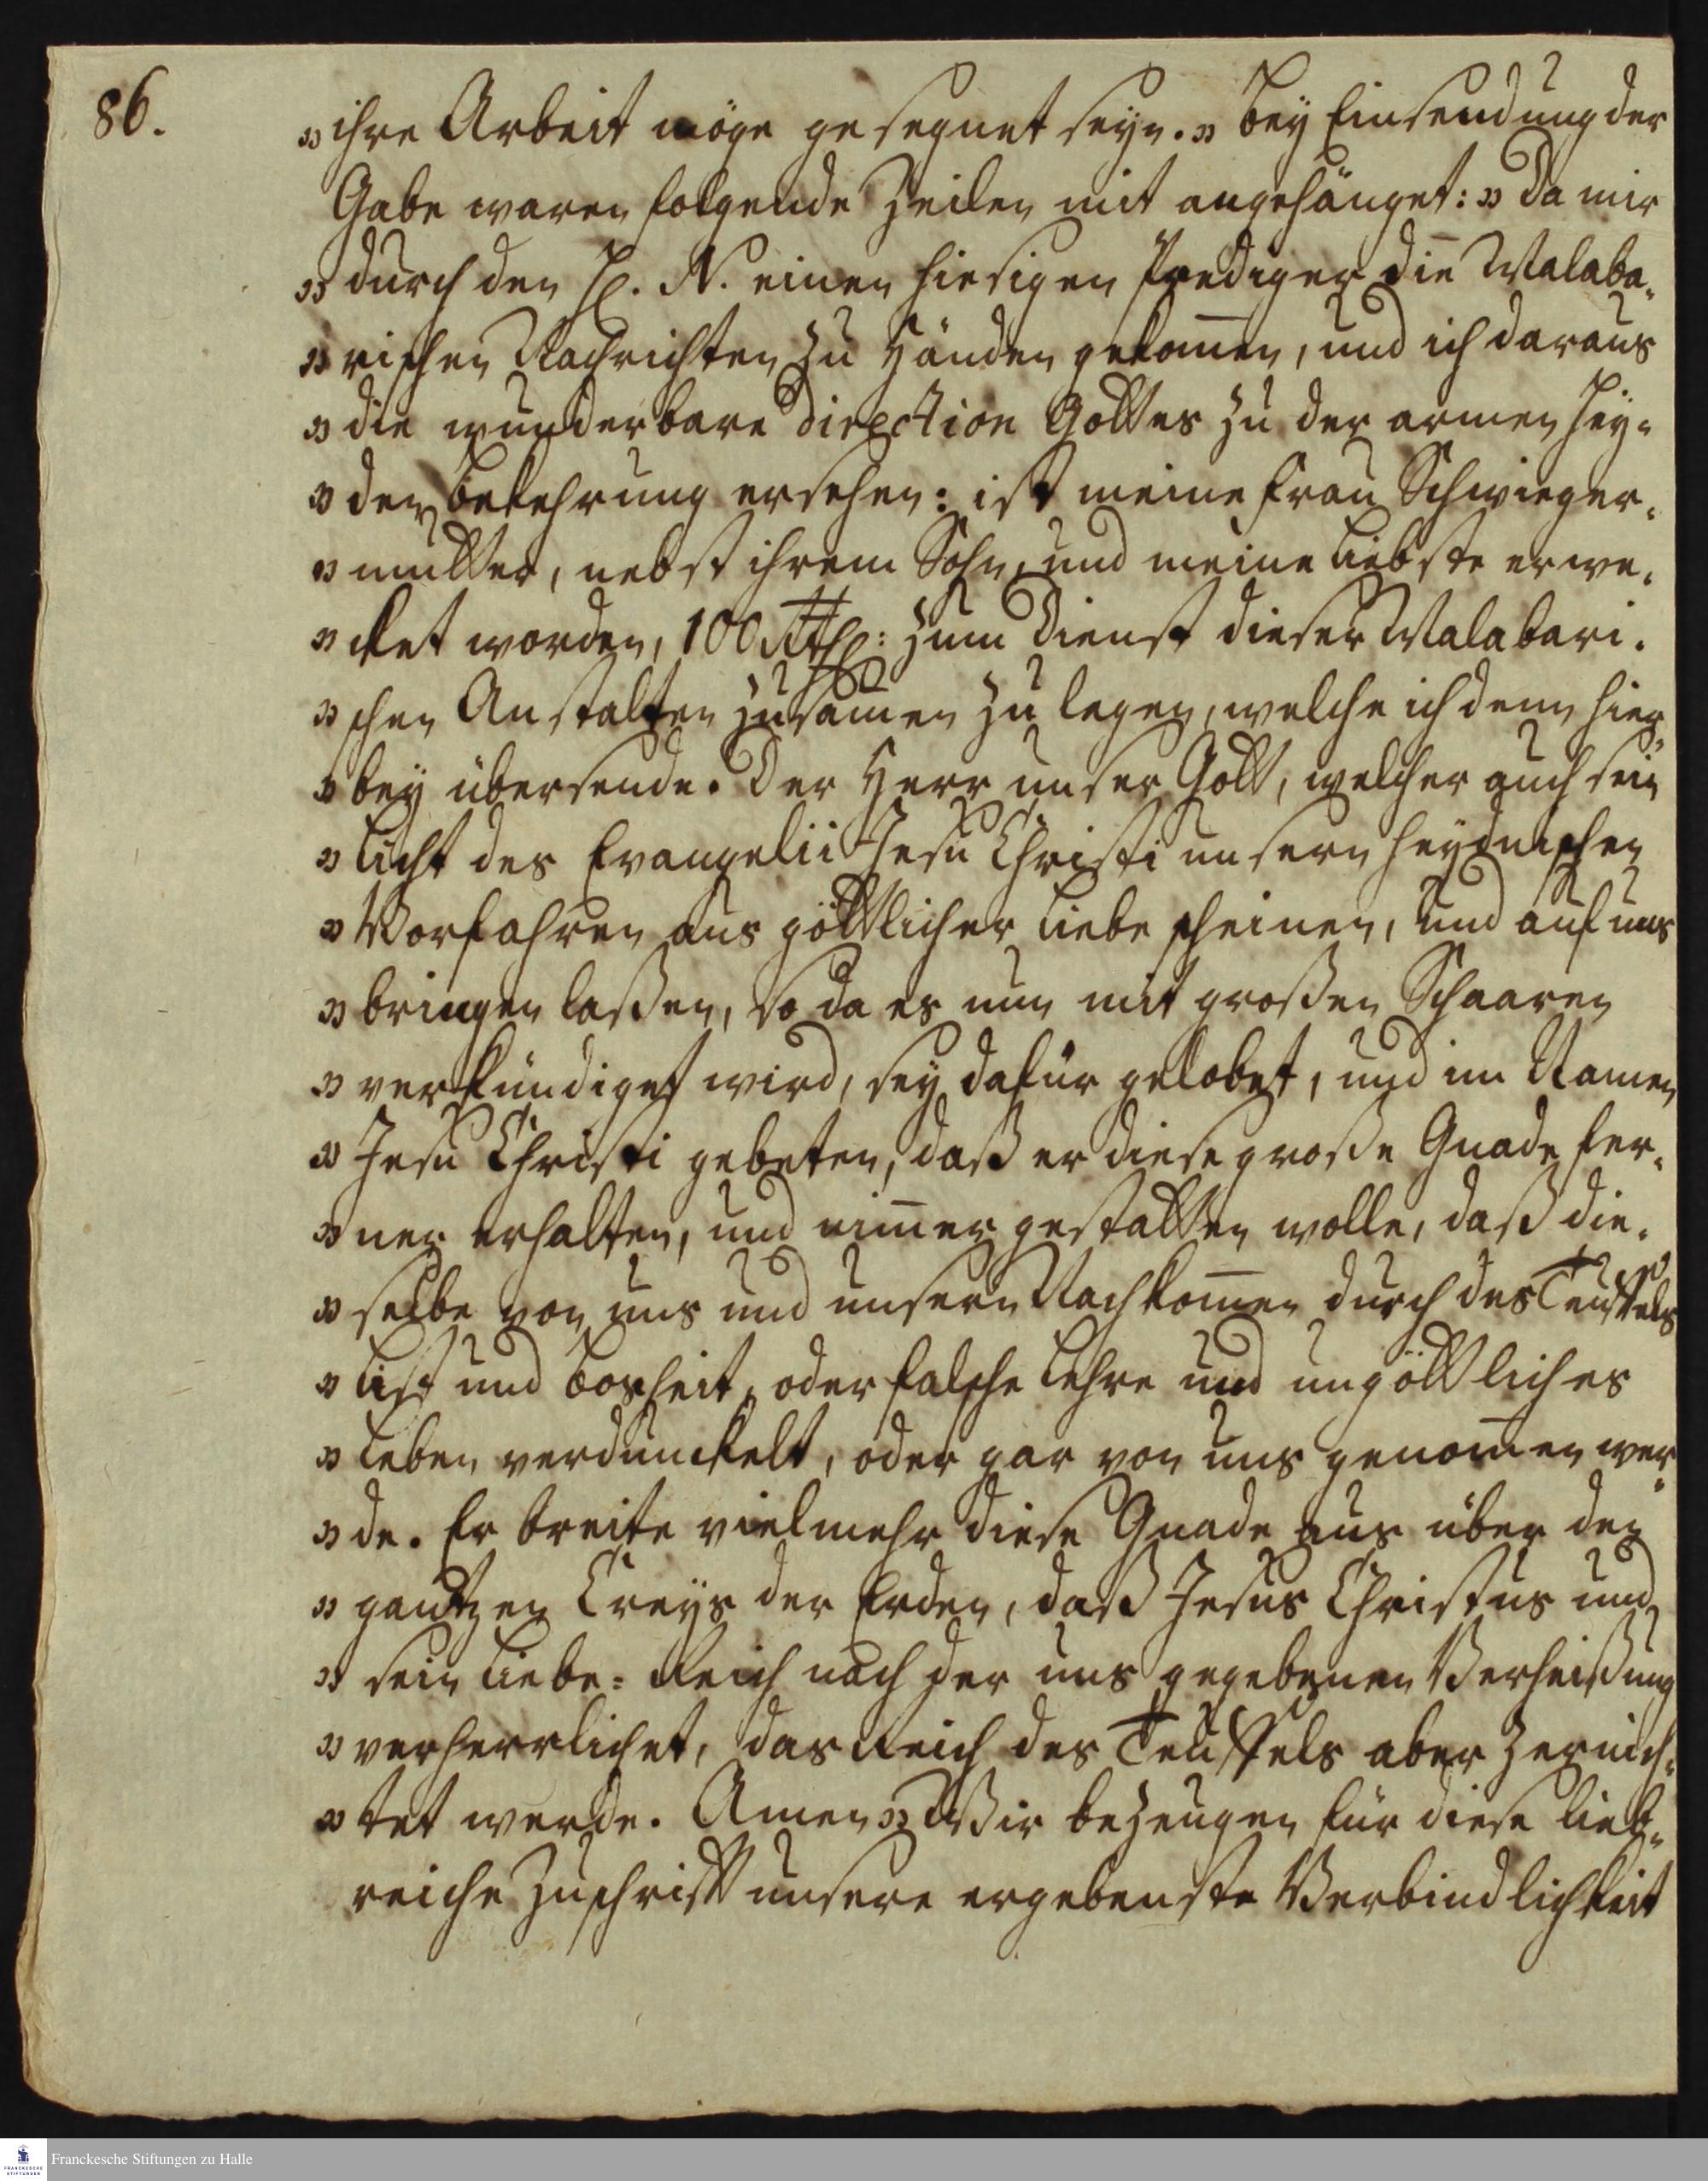 86.
„ ihre Arbeit möge gesegnet seyn. „ Bey Einsendung der
Gabe waren folgende Zeilen mit angehänget: „ Da mir
„ durch den H. N. einen hiesigen Prediger die Malaba-
„ rischen Nachrichten zu Händen gekom̄en, und ich daraus
„ die wunderbare direction Gottes zu der armen Hey-
„ den Bekehrung ersehen: ist meine Frau Schwieger-
„ mutter, nebst ihrem Sohn, und meine Liebste erwe-
„ cket worden, 100 Rthl: zum Dienst dieser Malabari-
„ schen Anstalten zusam̄en zu legen, welche ich denn hier-
„ bey übersende. Der Herr unser Gott, welcher auch sein
„ Licht des Evangelii Jesu Christi unsern heydnischen
„ Vorfahren aus göttlicher Liebe scheinen, und auf uns
„ bringen laßen, so da es nun mit großen Schaaren
„ verkündiget wird, sey dafür gelobet, und im Namen
„ Jesu Christi gebeten, daß er diese große Gnade fer-
„ ner erhalten, und nim̄er gestatten wolle, daß die-
„ selbe von uns und unsern Nachkom̄en durch des Teuffels
„ List und Bosheit, oder falsche Lehre und ungöttliches
„ Leben verdunckelt, oder gar von uns genom̄en wer-
„ de. Er breite vielmehr diese Gnade aus über den
„ gantzen Creys der Erden, daß Jesus Christus und
„ sein Liebes-Reich nach der uns gegebenen Verheißung
„ verherrlichet, das Reich des Teuffels aber zernich-
„ tet werde. Amen „ Wir bezeugen für diese lieb-
reiche Zuschrifft unsere ergebenste Verbindlichkeit
FRANCKESCHE STIFTUNGEN
Franckesche Stiftungen zu Halle